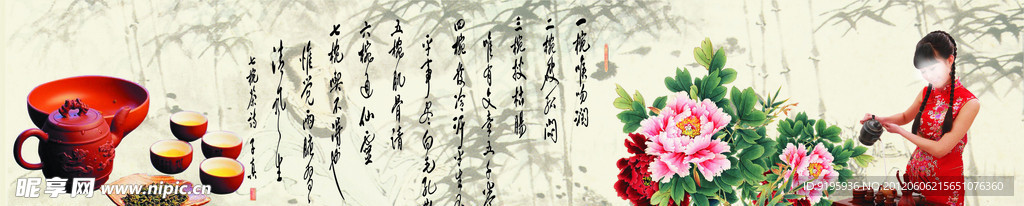 一碗喉吻润
二碗破孤闷
三碗搜枯肠
唯有文章五千卷
四碗发轻汗平生不
平事尽向毛孔散
五碗肌骨清
六碗通仙灵
七碗吃不得也
惟觉两腋习习
清风生
七碗茶诗
昵享网 www.nipic.cn
ID:9195936 NO:20120606215651076360